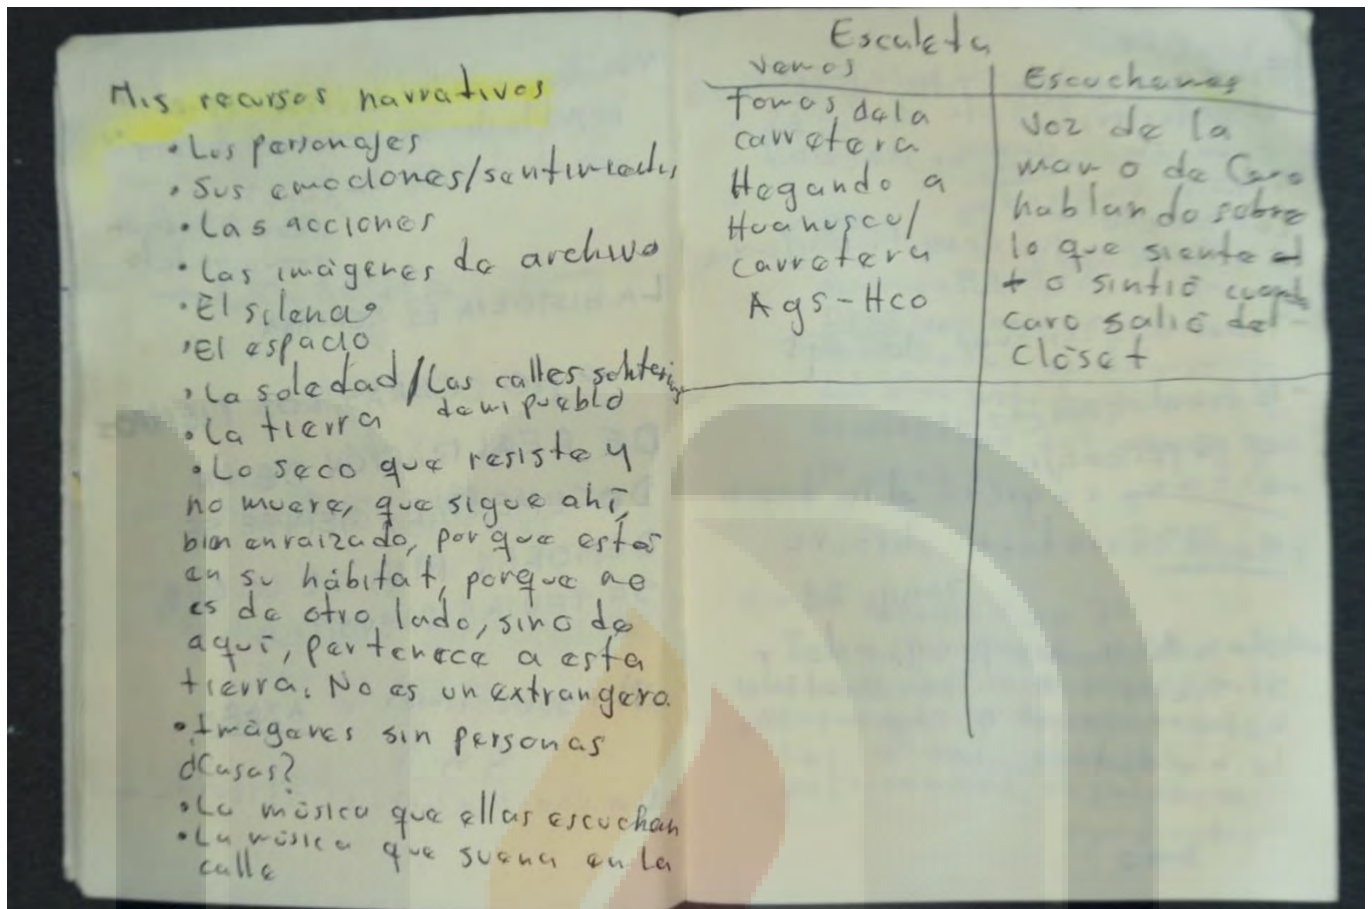 Mis recursos narrativos
• Los personajes
• Sus emociones/sentimientos
• Las acciones
• Las imágenes de archivo
• El silencio
• El espacio
• La soledad / Las calles solitarias de mi pueblo
• La tierra
• Lo seco que resiste y
no muere, que sigue ahí,
bien enraizado, porque está
en su hábitat, porque no
es de otro lado, sino de
aquí, pertenece a esta
tierra. No es un extrangero.
• Imágenes sin personas
¿Casas?
• La música que ellas escuchan
• La música que suena en la
calle
Escaleta
Vemos
Tomas de la
carretera
llegando a
Huanusco/
carretera
Ags-Hco
Escuchamos
Voz de la
mamá de Caro
hablando sobre
lo que siente
o sintió cuando
Caro salió del
clóset